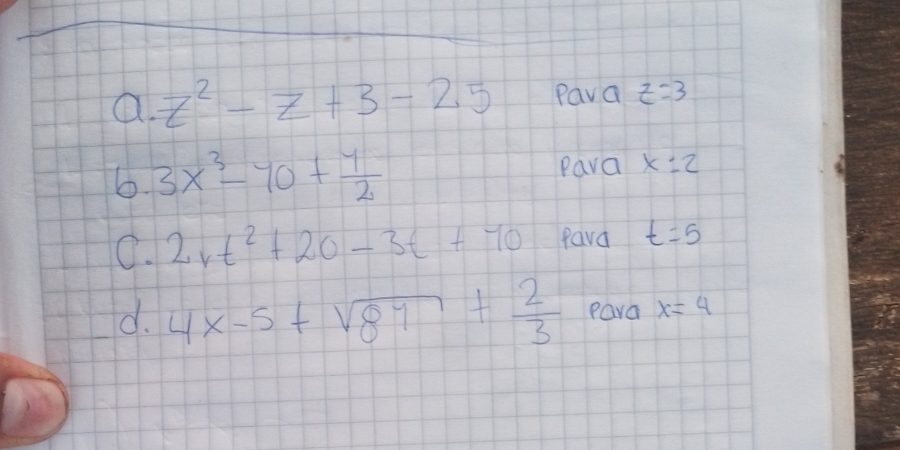 a. z² - z + 3 - 2.5 Para z=3
b. 3x³ - 10 + 1/2 Para x=2
C. 2,t² + 20 - 3t + 10 Para t=5
d. 4x - 5 + √81 + 2/3 Para x=4